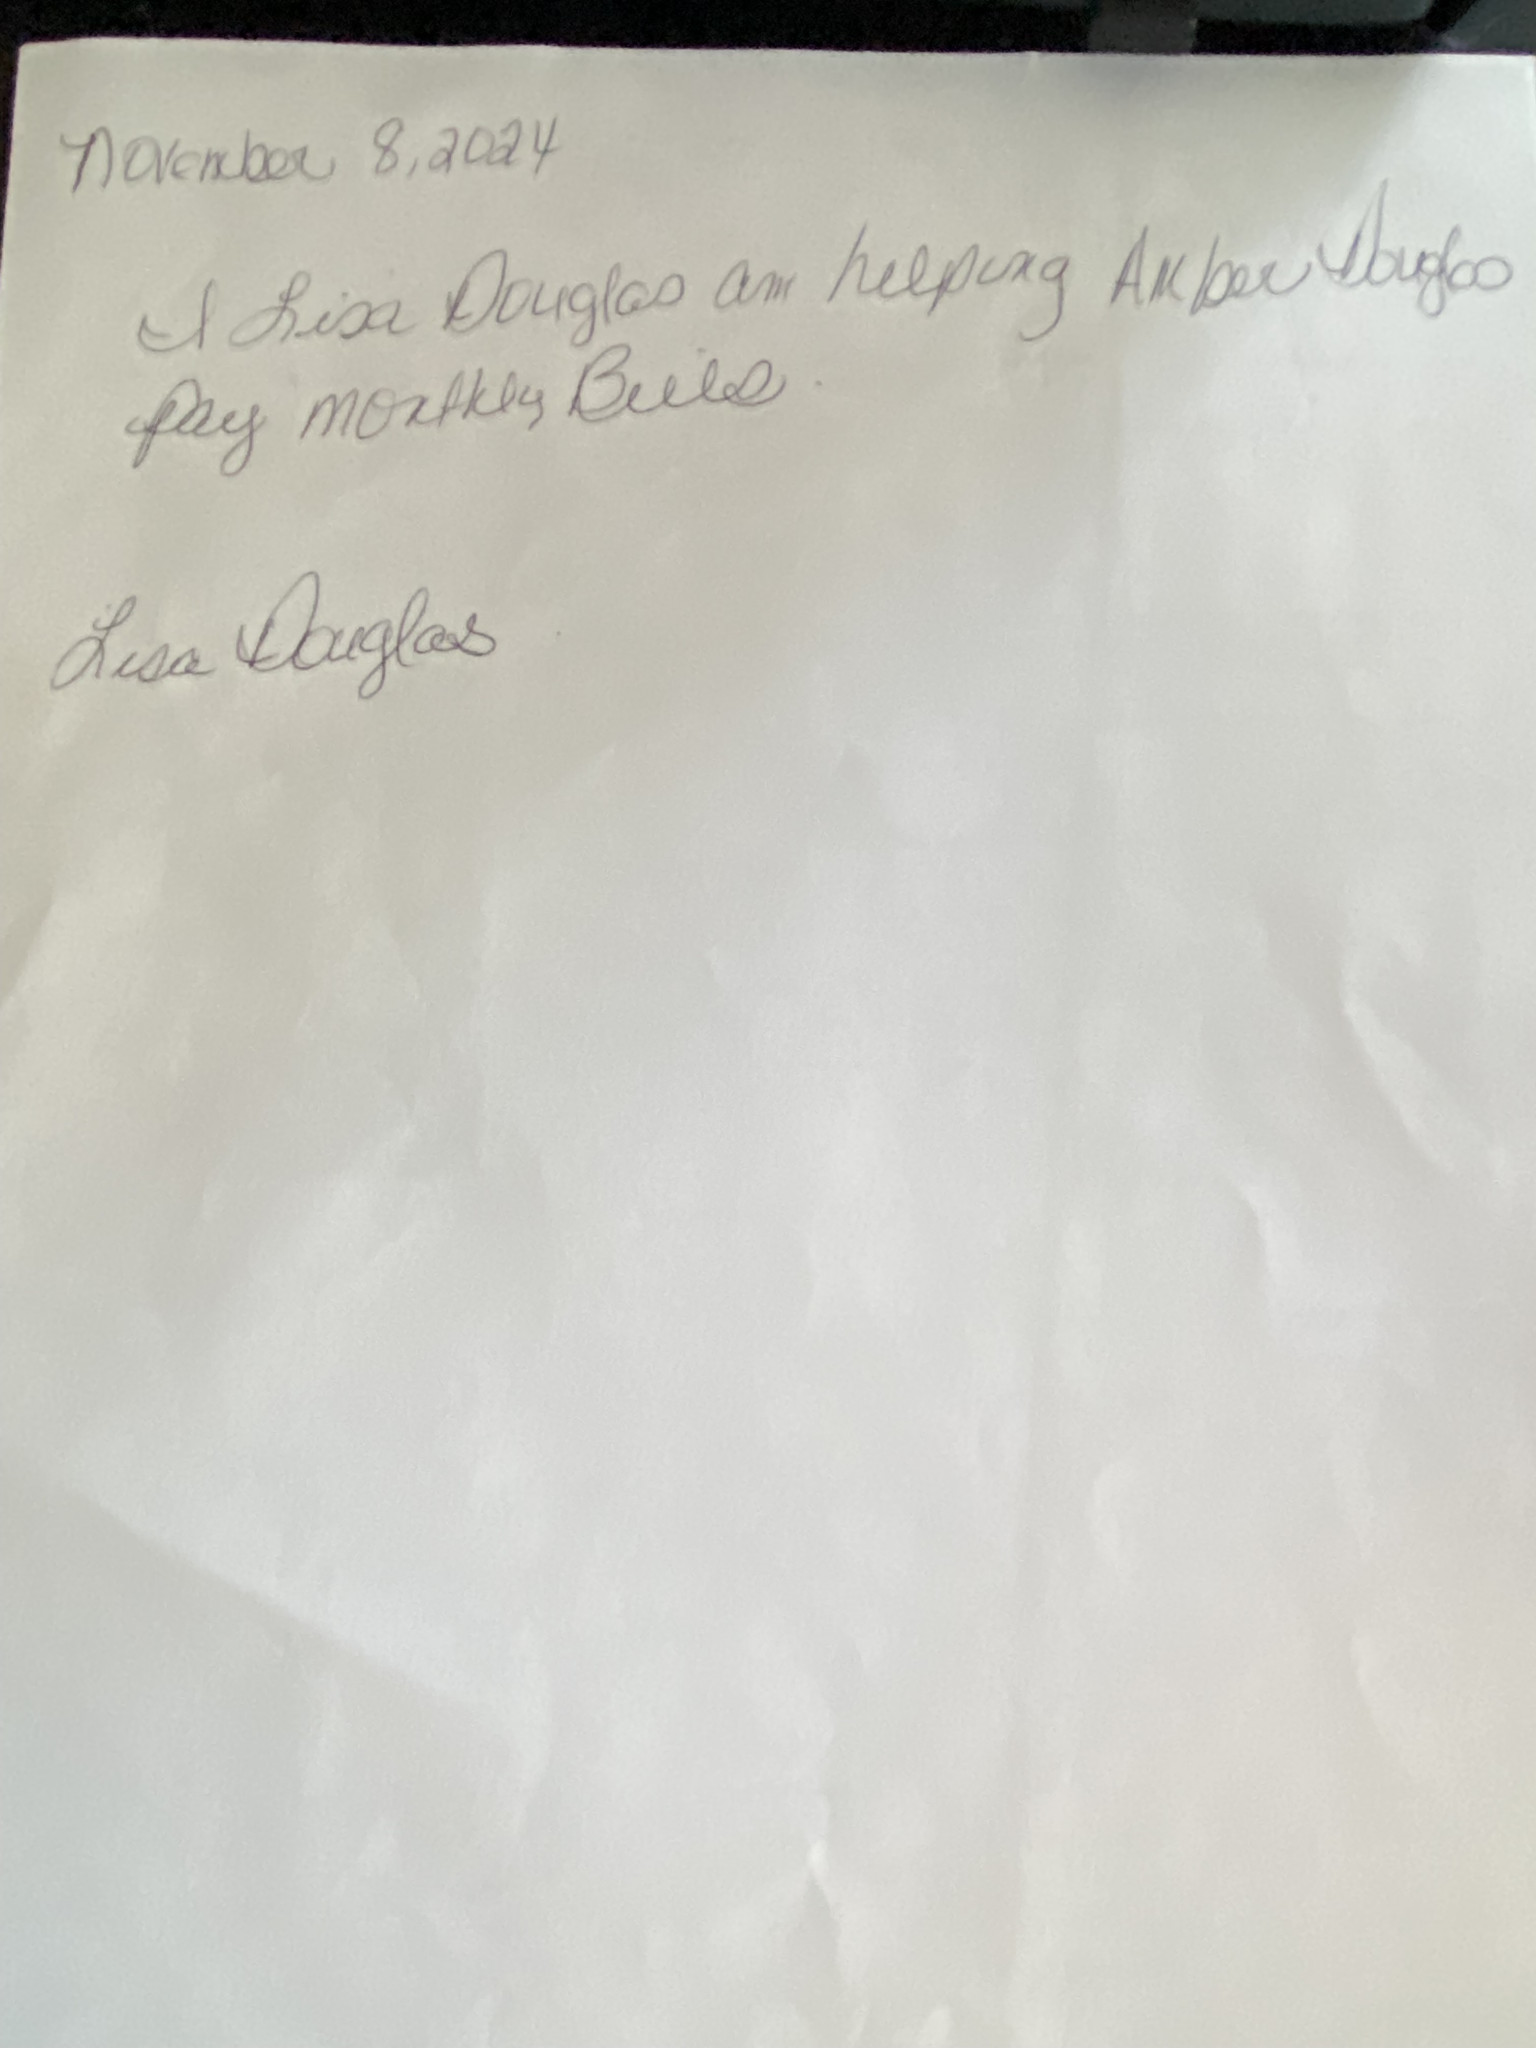 November 8, 2024
I Lisa Douglas am helping Amber Douglas
pay monthly Bills.
Lisa Douglas